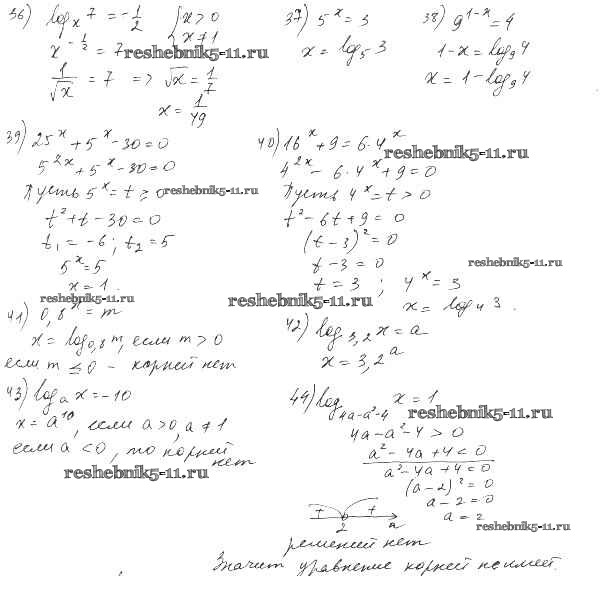 36) log_x 7 = -1/2 { x > 0
x ≠ 1
x^(-1/2) = 7
1/√x = 7 => √x = 1/7
x = 1/49
reshebnik5-11.ru
37) 5^x = 3
x = log_5 3
38) 9^(1-x) = 4
1-x = log_9 4
x = 1 - log_9 4
39) 25^x + 5^x - 30 = 0
5^(2x) + 5^x - 30 = 0
Пусть 5^x = t ≥ 0
reshebnik5-11.ru
t^2 + t - 30 = 0
t_1 = -6; t_2 = 5
5^x = 5
x = 1.
reshebnik5-11.ru
40) 16^x + 9 = 6·4^x
reshebnik5-11.ru
4^(2x) - 6·4^x + 9 = 0
Пусть 4^x = t > 0
t^2 - 6t + 9 = 0
(t-3)^2 = 0
t - 3 = 0
reshebnik5-11.ru
t = 3 ; 4^x = 3
x = log_4 3.
reshebnik5-11.ru
41) 0,8^x = m
x = log_0,8 m, если m > 0
если m ≤ 0 - корней нет
42) log_3,2 x = a
x = 3,2^a
43) log_a x = -10
x = a^10, если a > 0, a ≠ 1
если a < 0, то корней
нет
reshebnik5-11.ru
44) log_(4a-a^2-4) x = 1
reshebnik5-11.ru
4a - a^2 - 4 > 0
a^2 - 4a + 4 < 0
a^2 - 4a + 4 = 0
(a-2)^2 = 0
a - 2 = 0
a = 2
+ 2 + a
reshebnik5-11.ru
решений нет
Значит уравнение корней не имеет.